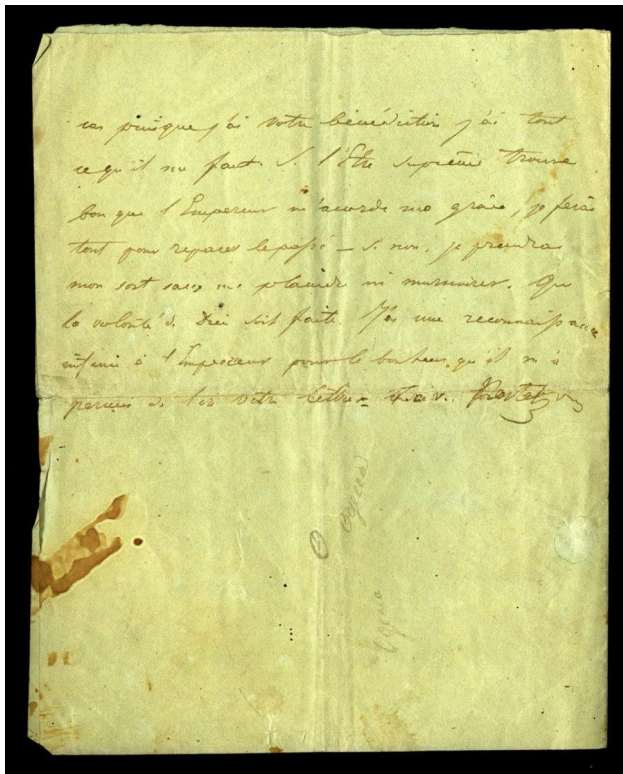 cas puisque j'ai votre bénédiction j'ai tout
ce qu'il me faut. Si l'Etre suprême trouve
bon que l'Empereur m'acorde ma grâce, je ferai
tout pour reparer le passé — si non, je prendrai
mon sort sans me plaindre ni murmurer. Que
la volonté de Dieu soit faite. J'ai une reconnaissance
infinie à l'Empereur pour le bonheur qu'il m'a
permis de lire votre lettre